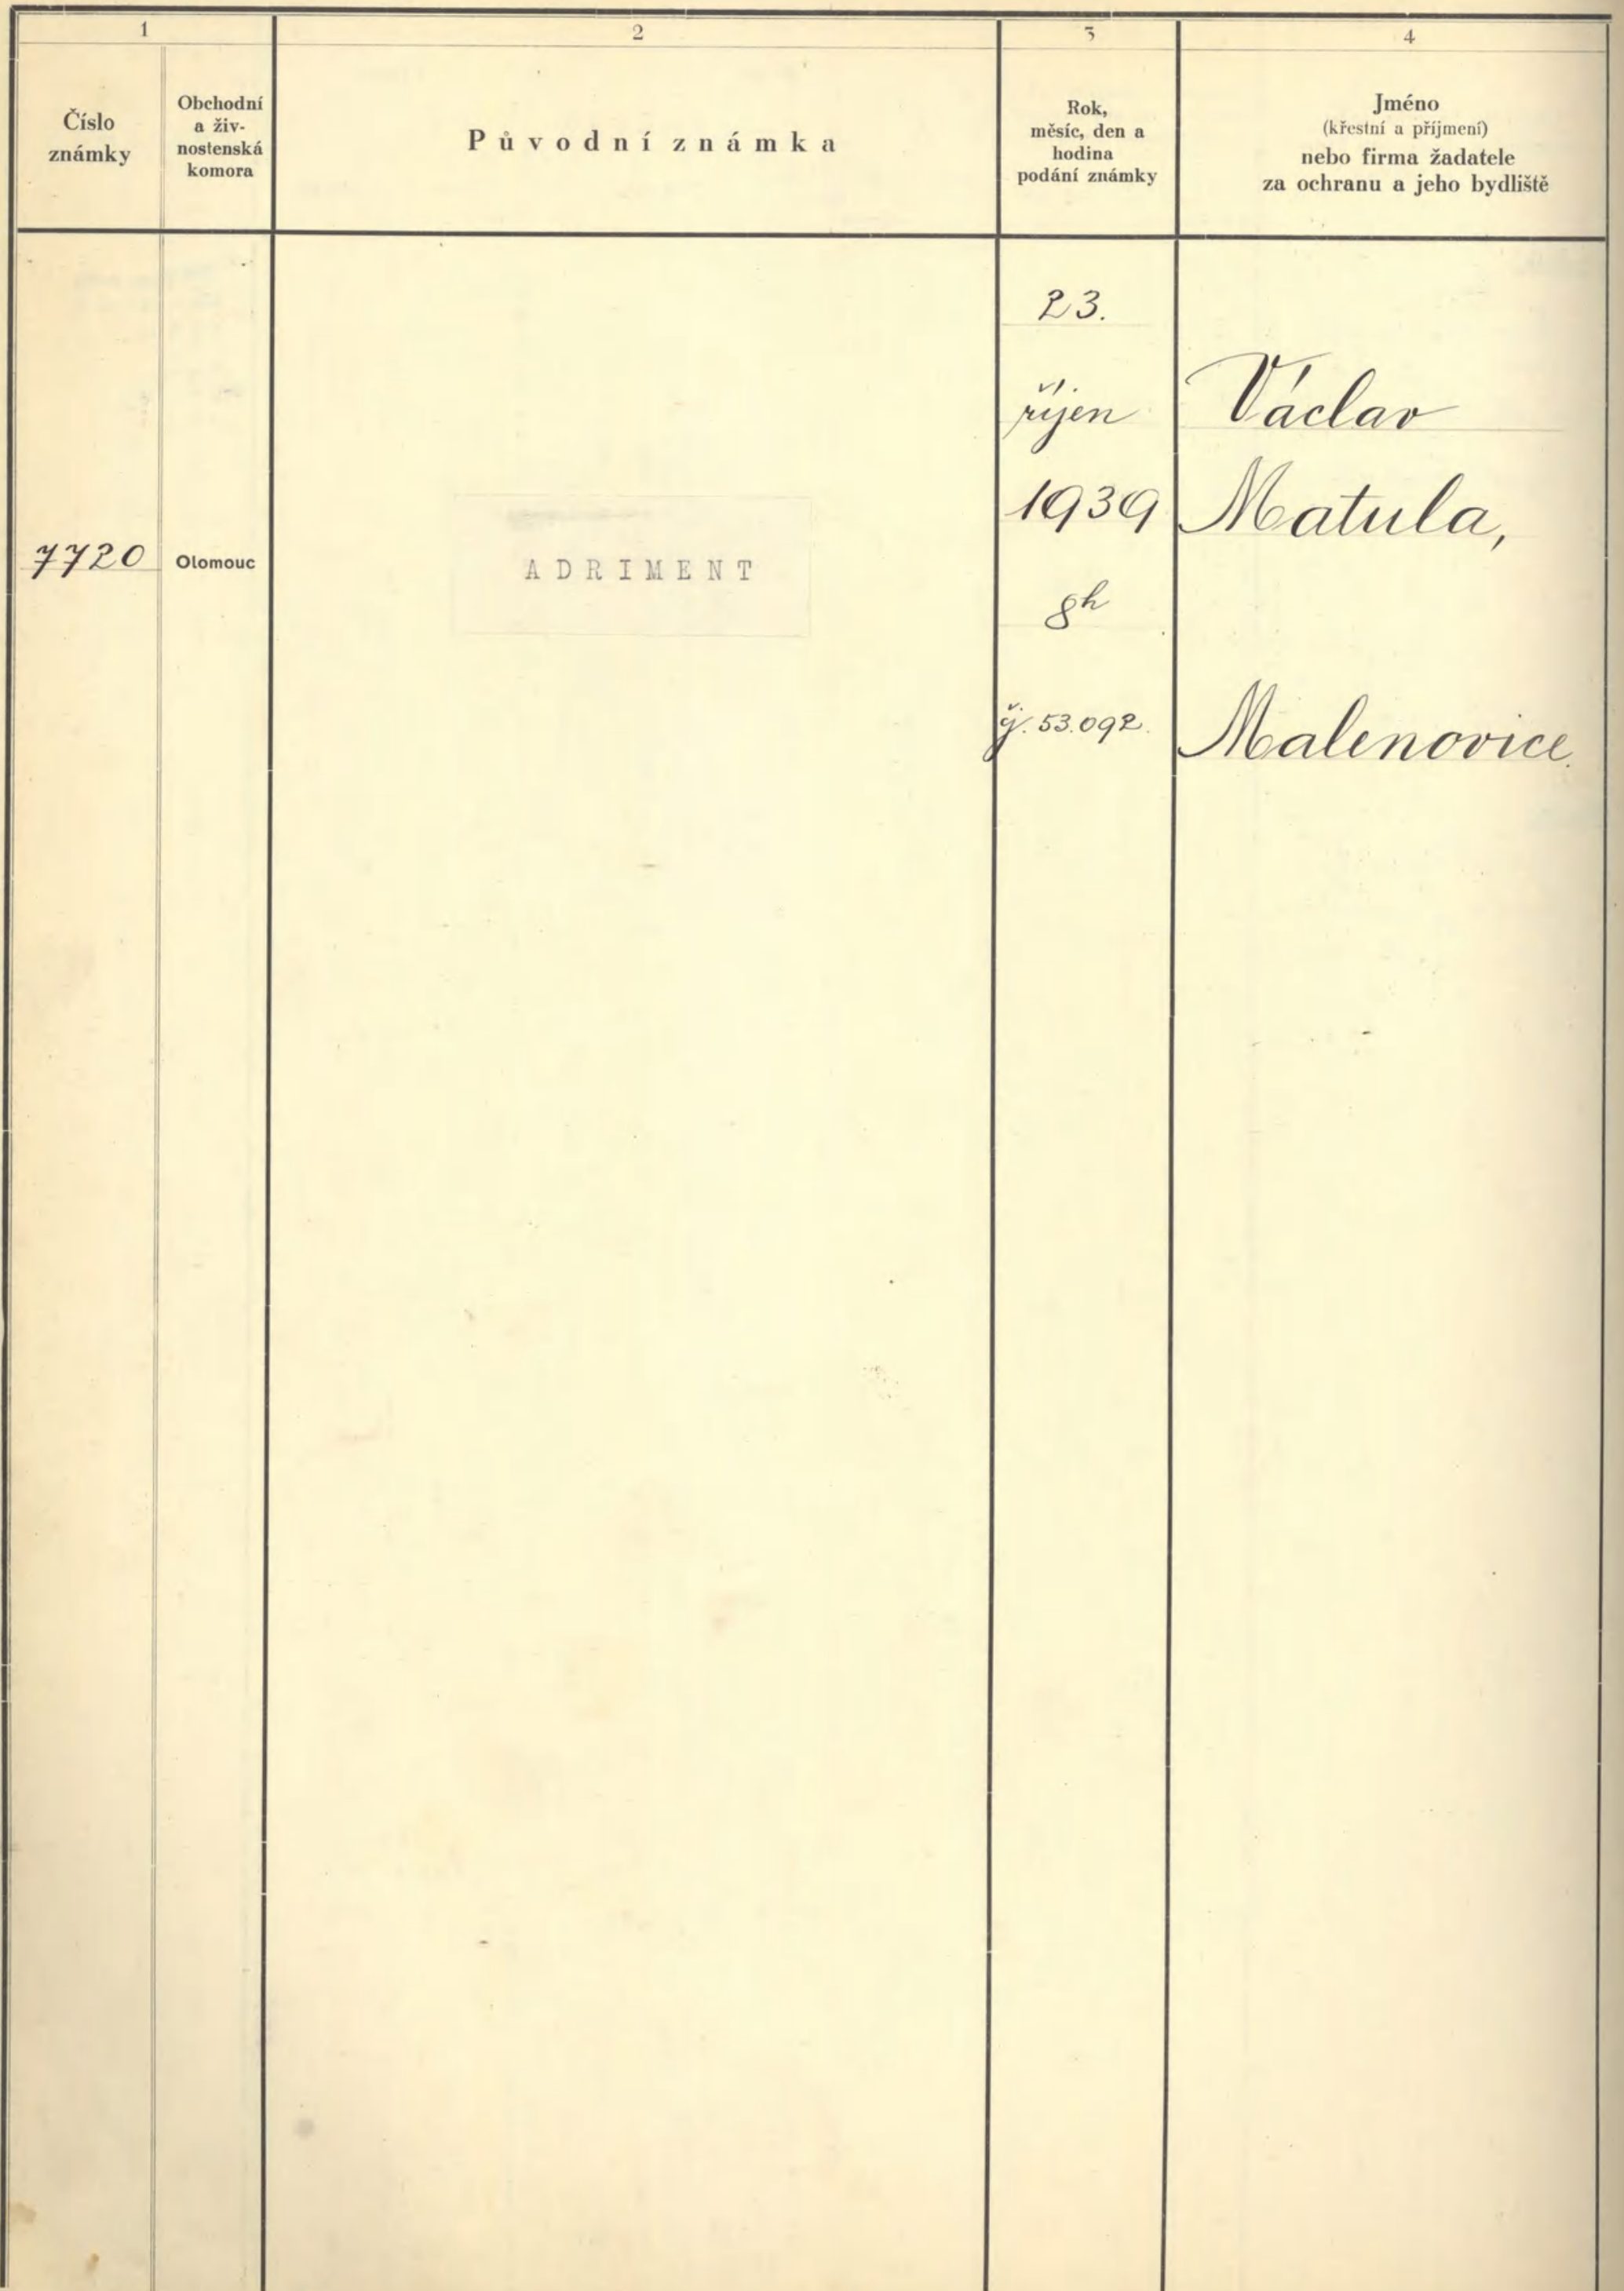 1
2
3
4
Číslo
známky
Obchodní
a živ-
nostenská
komora
Původní známka
Rok,
měsíc, den a
hodina
podání známky
Jméno
(křestní a příjmení)
nebo firma žadatele
za ochranu a jeho bydliště
7720
Olomouc
ADRIMENT
23.
říjen
1939
8h
čj. 53.092.
Václav
Matula,
Malenovice.